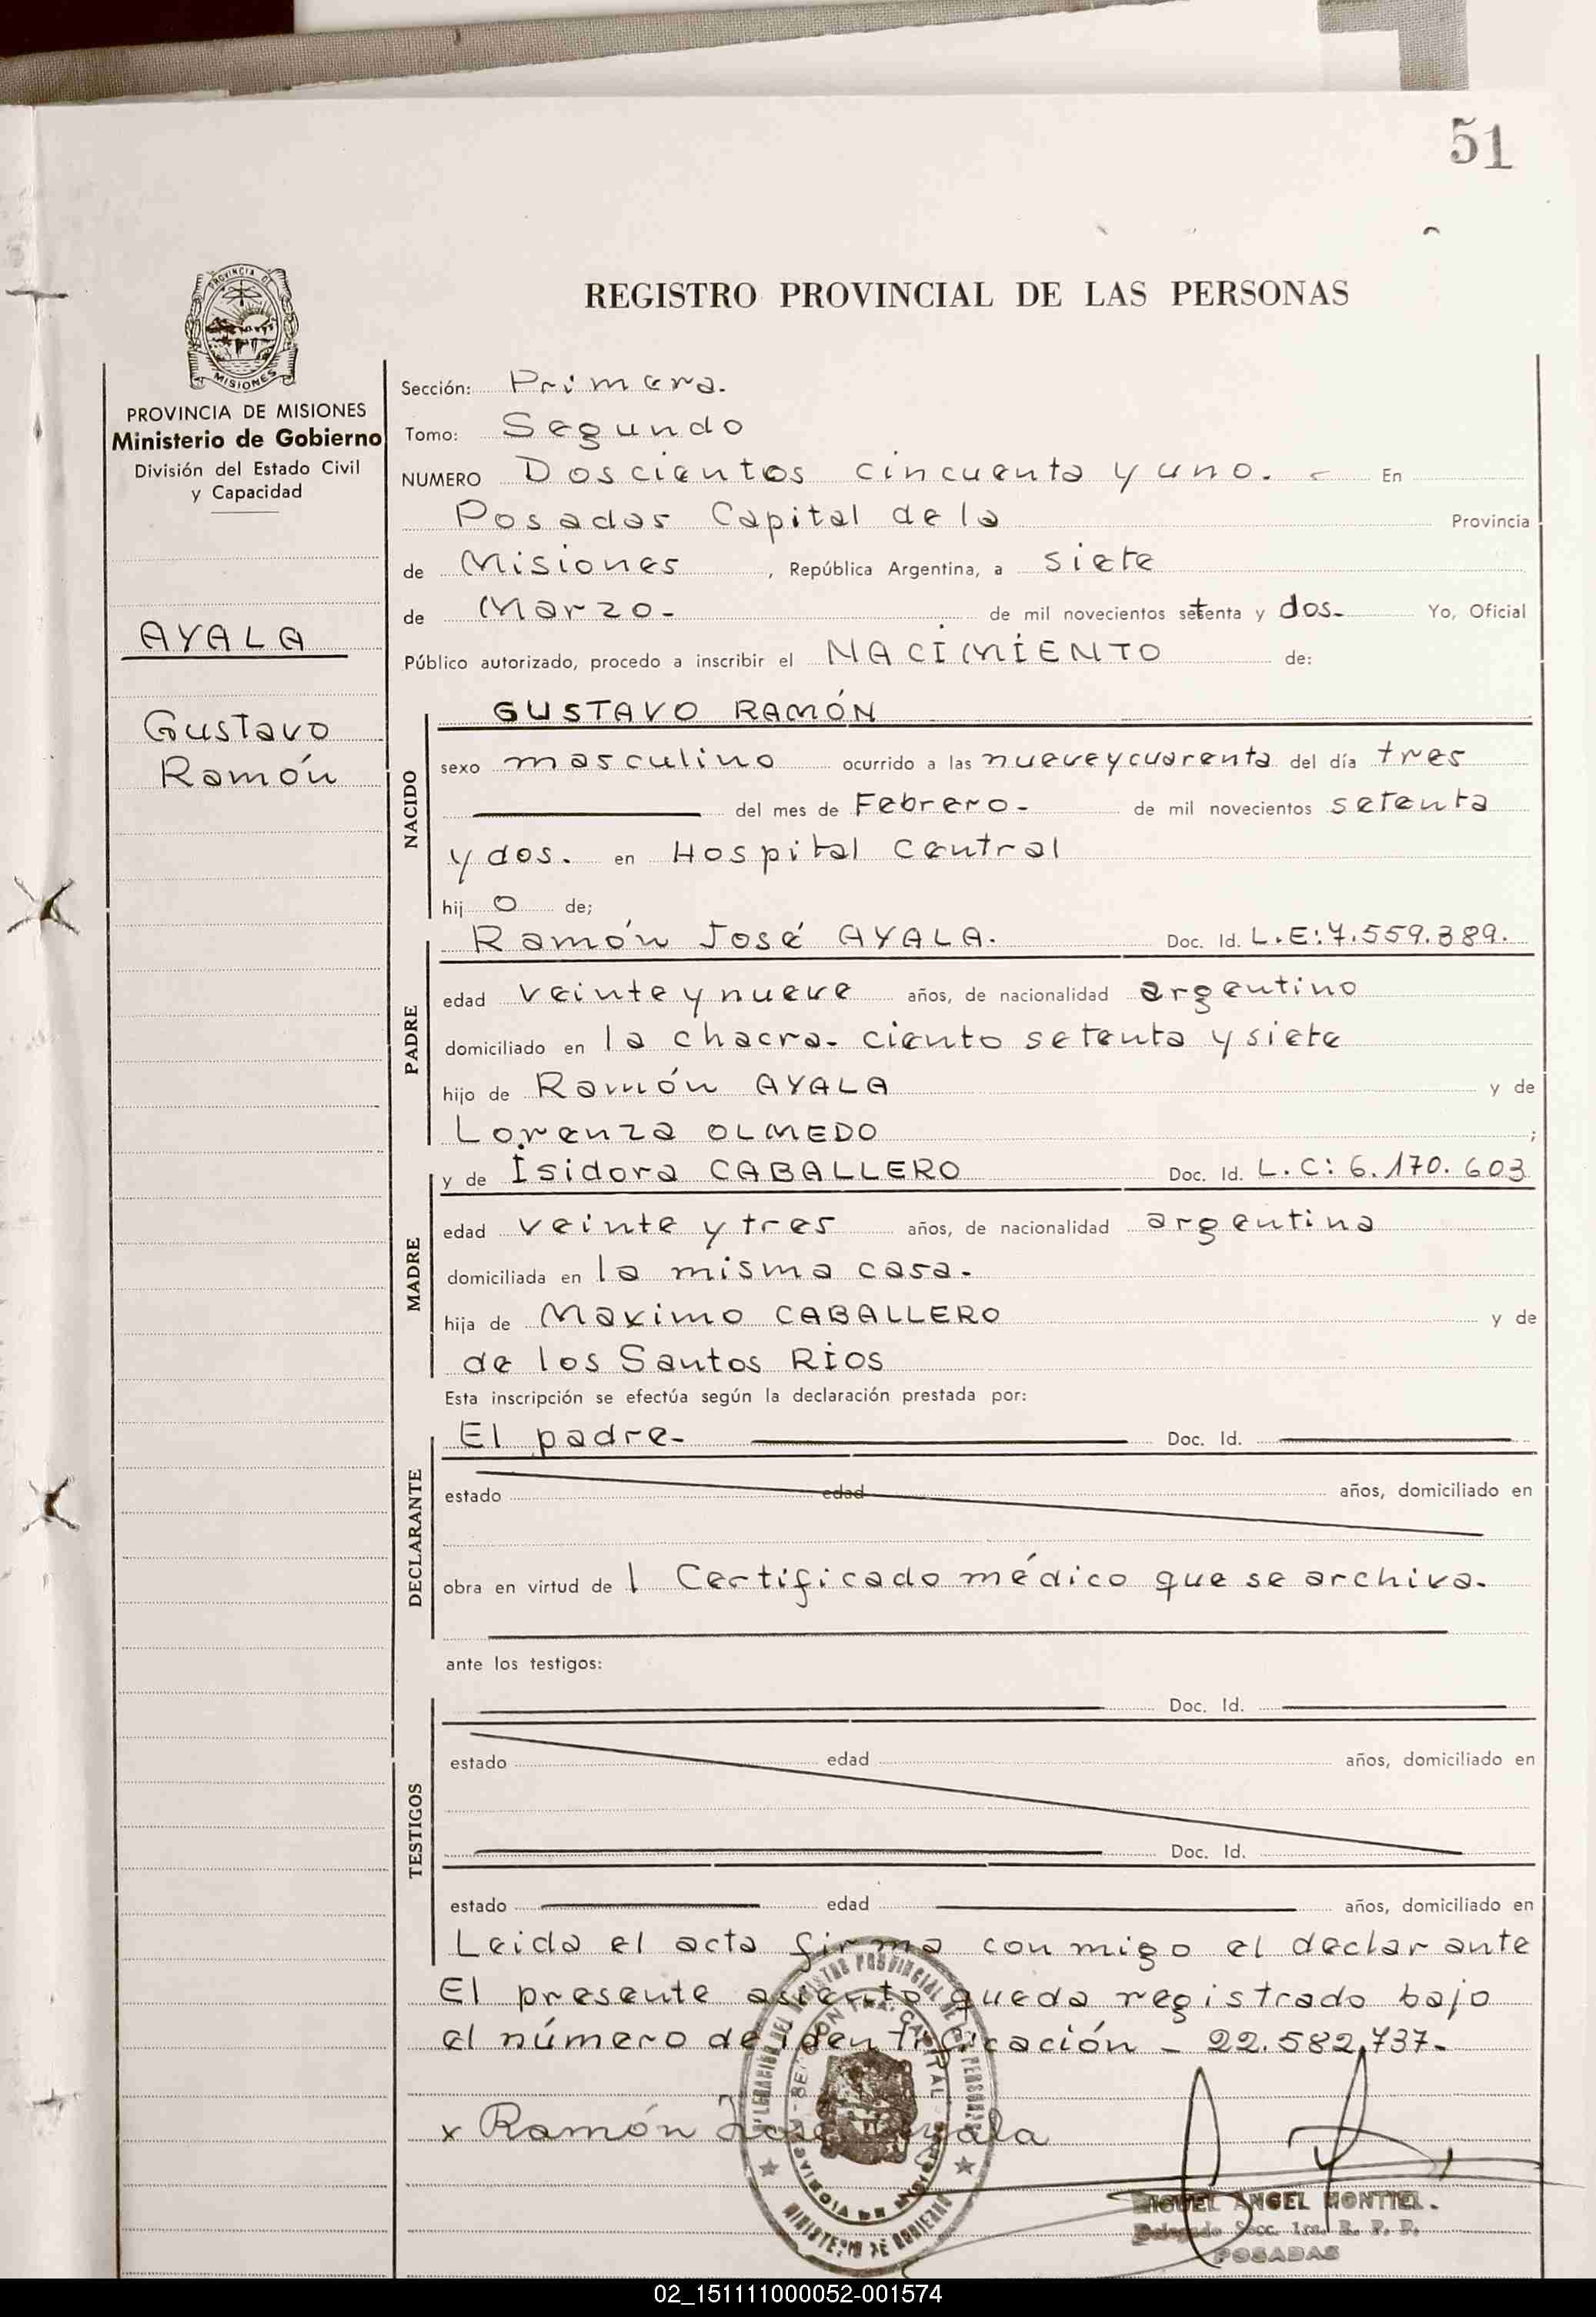 51
PROVINCIA DE
MISIONES
REGISTRO PROVINCIAL DE LAS PERSONAS
PROVINCIA DE MISIONES
Ministerio de Gobierno
División del Estado Civil
y Capacidad
AYALA
Gustavo
Ramón
Sección: Primera.
Tomo: Segundo
NUMERO Doscientos cincuenta y uno. - En
Posadas Capital de la Provincia
de Misiones, República Argentina, a siete
de Marzo- de mil novecientos setenta y dos- Yo, Oficial
Público autorizado, procedo a inscribir el NACIMIENTO de:
NACIDO
GUSTAVO RAMÓN
sexo masculino ocurrido a las nueve y cuarenta del día tres
del mes de Febrero- de mil novecientos setenta
y dos. en Hospital Central
hij o de;
PADRE
Ramón José AYALA. Doc. Id. L.E: 7.559.389.
edad veinte y nueve años, de nacionalidad argentino
domiciliado en la chacra- ciento setenta y siete
hijo de Ramón AYALA y de
Lorenza OLMEDO ;
MADRE
y de Isidora CABALLERO Doc. Id. L.C: 6.170.603
edad veinte y tres años, de nacionalidad argentina
domiciliada en la misma casa-
hija de Maximo CABALLERO y de
de los Santos RIOS
Esta inscripción se efectúa según la declaración prestada por:
DECLARANTE
El padre- Doc. Id.
estado edad años, domiciliado en
obra en virtud de l Certificado médico que se archiva.
ante los testigos:
TESTIGOS
Doc. Id.
estado edad años, domiciliado en
Doc. Id.
estado edad años, domiciliado en
Leida el acta firma conmigo el declarante
El presente asiento queda registrado bajo
el número de identificación - 22.582.737-
x Ramón José Ayala
MIGUEL ANGEL MONTIEL.
Delegado Secc. 1ra. R. P. P.
POSADAS
MINISTERIO DE GOBIERNO
02_151111000052-001574